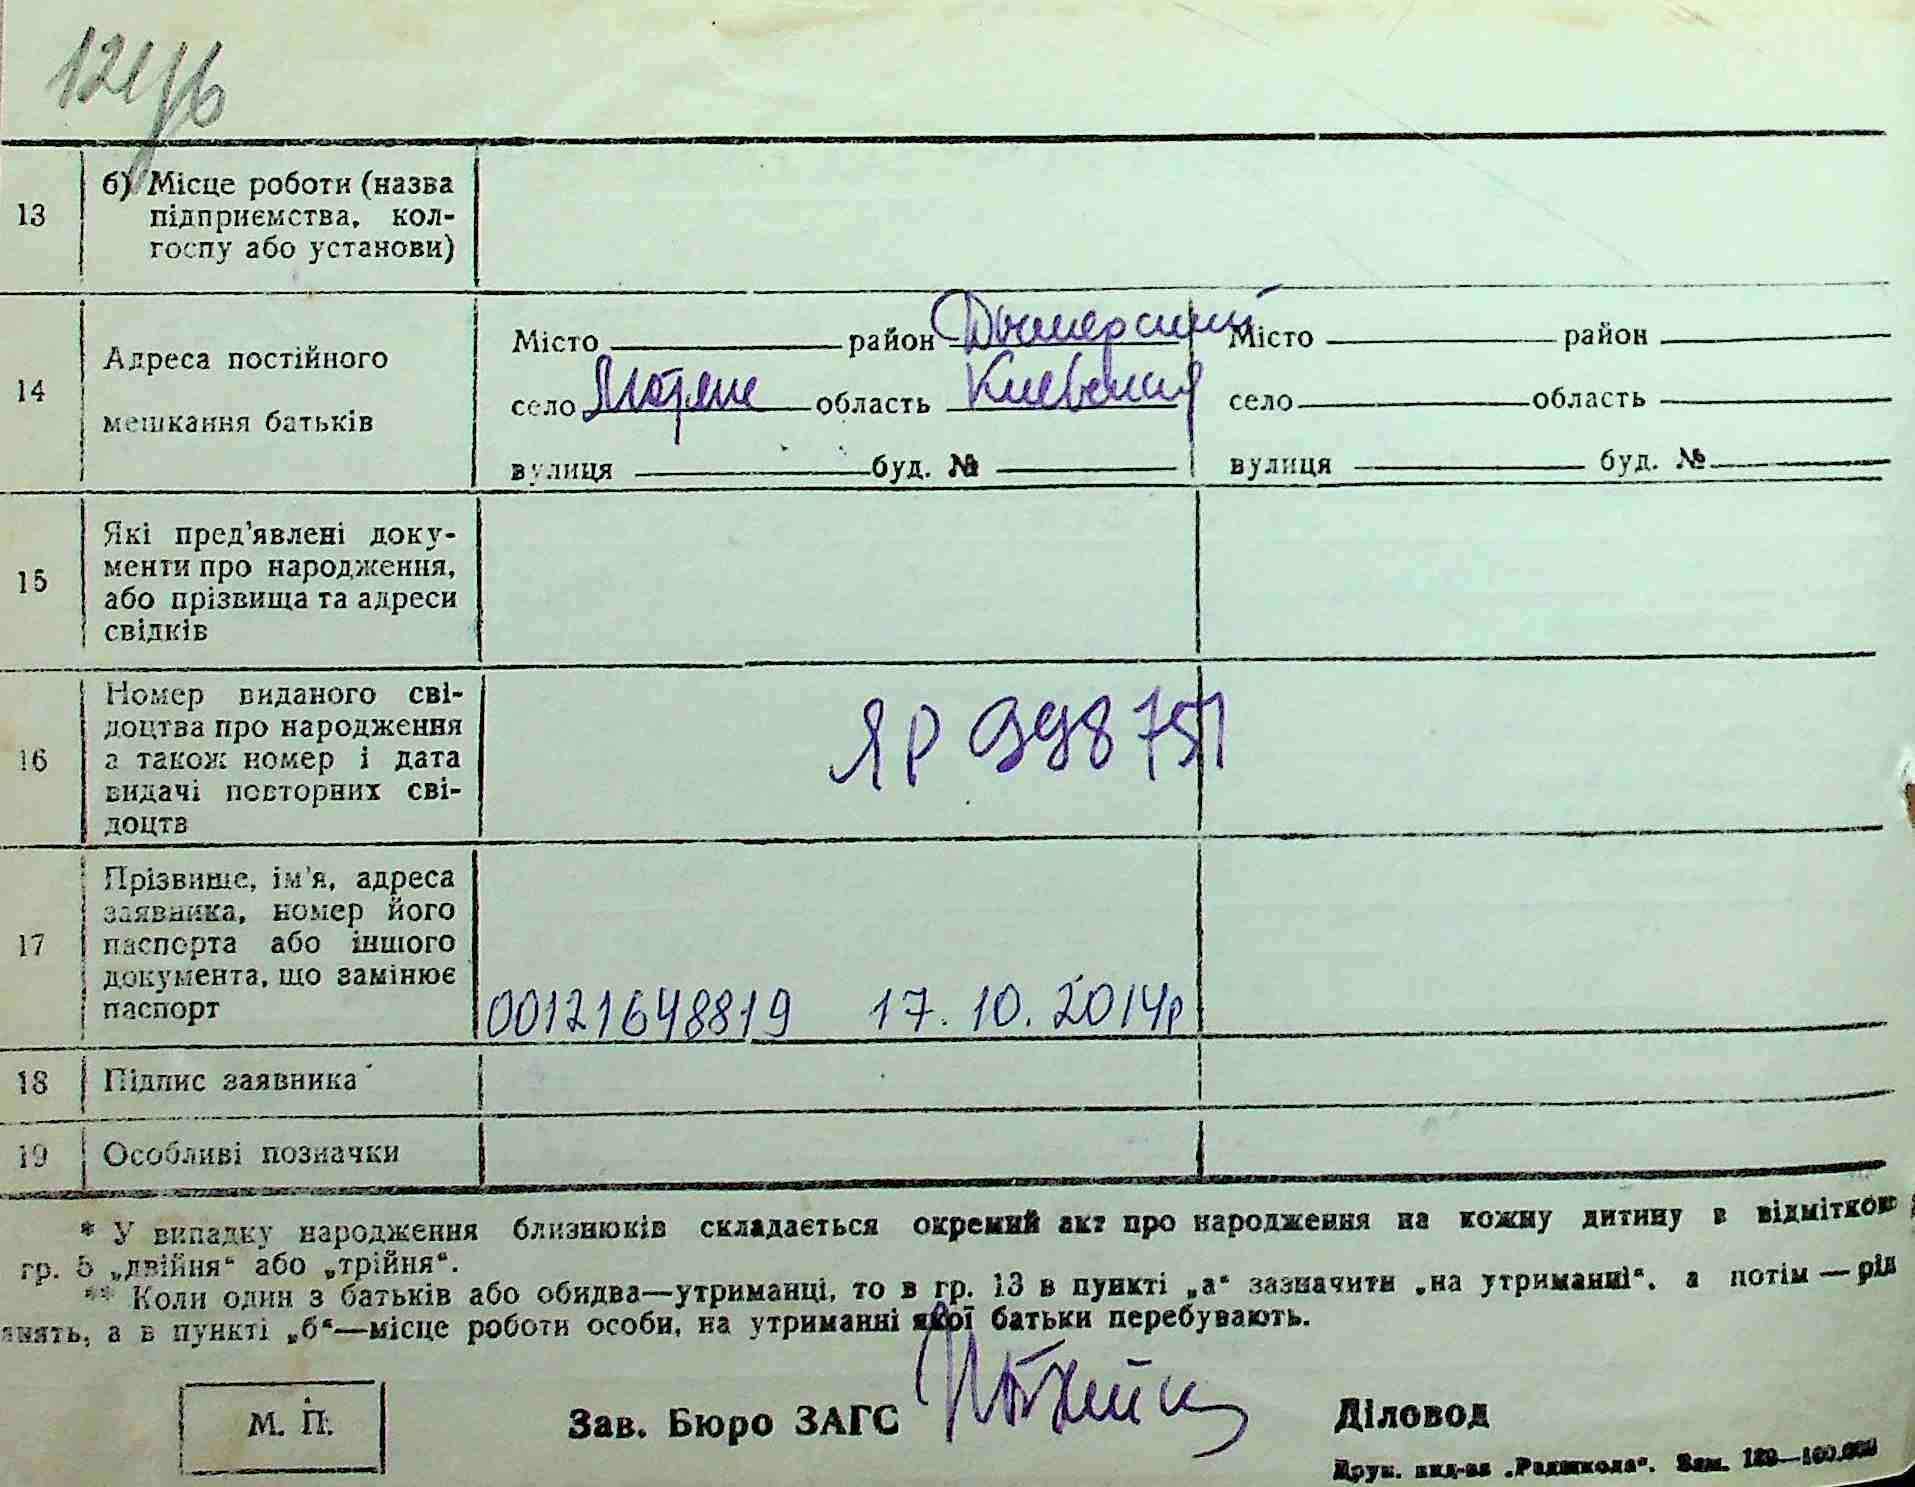 13
б) Місце роботи (назва
підприємства, кол-
госпу або установи)
14
Адреса постійного
мешкання батьків
Місто район Дымерский
село область Киевская
вулиця буд. №
Місто район
село область
вулиця буд. №
15
Які пред'явлені доку-
менти про народження,
або прізвища та адреси
свідків
16
Номер виданого сві-
доцтва про народження
а також номер і дата
видачі повторних сві-
доцтв
ЯР 998751
17
Прізвище, ім'я, адреса
заявника, номер його
паспорта або іншого
документа, що замінює
паспорт
00121648819 17.10.2014р
18
Підпис заявника
19
Особливі позначки
* У випадку народження близнюків складається окремий акт про народження на кожну дитину в відміткою
гр. 5 „двійня“ або „трійня“.
** Коли один з батьків або обидва—утриманці, то в гр. 13 в пункті „а“ зазначити „на утриманні“, а потім — рід
занять, а в пункті „б“—місце роботи особи, на утриманні якої батьки перебувають.
М. П.
Зав. Бюро ЗАГС
Діловод
Друк. вид-ва „Радшкола“. Зам. 189—100.000